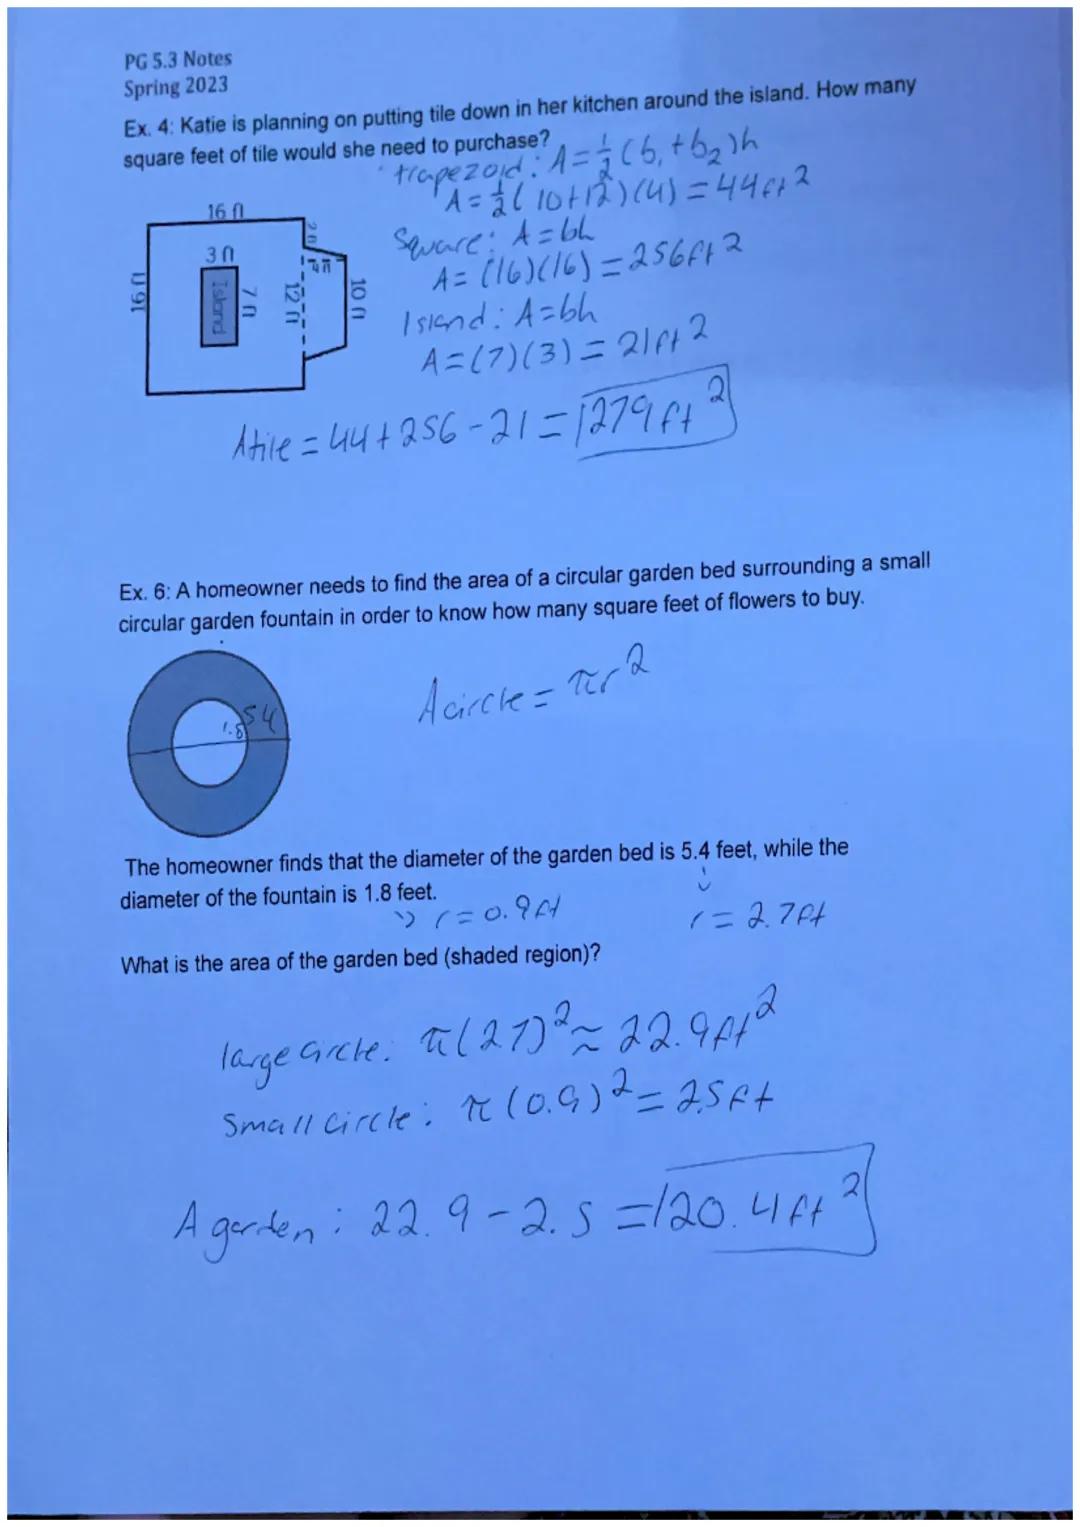 PG 5.3 Notes
Spring 2023
Ex. 4: Katie is planning on putting tile down in her kitchen around the island. How many
square feet of tile would she need to purchase?
trapezoid: A = 1/2 (b₁ + b₂)h
A = 1/2 (10+12)(4) = 44ft²
Square: A = bh
A = (16)(16) = 256ft²
Island: A = bh
A = (7)(3) = 21ft²
16 ft
2 ft
3 ft
4 ft
16 ft
Island
7 ft
12 ft
10 ft
Atile = 44 + 256 - 21 = 279 ft²
Ex. 6: A homeowner needs to find the area of a circular garden bed surrounding a small
circular garden fountain in order to know how many square feet of flowers to buy.
A circle = πr²
1.8
54
The homeowner finds that the diameter of the garden bed is 5.4 feet, while the
diameter of the fountain is 1.8 feet.
r = 0.9ft
r = 2.7ft
What is the area of the garden bed (shaded region)?
large circle: π(2.7)² ≈ 22.9ft²
Small circle: π(0.9)² = 2.5ft
A garden: 22.9 - 2.5 = 20.4ft²